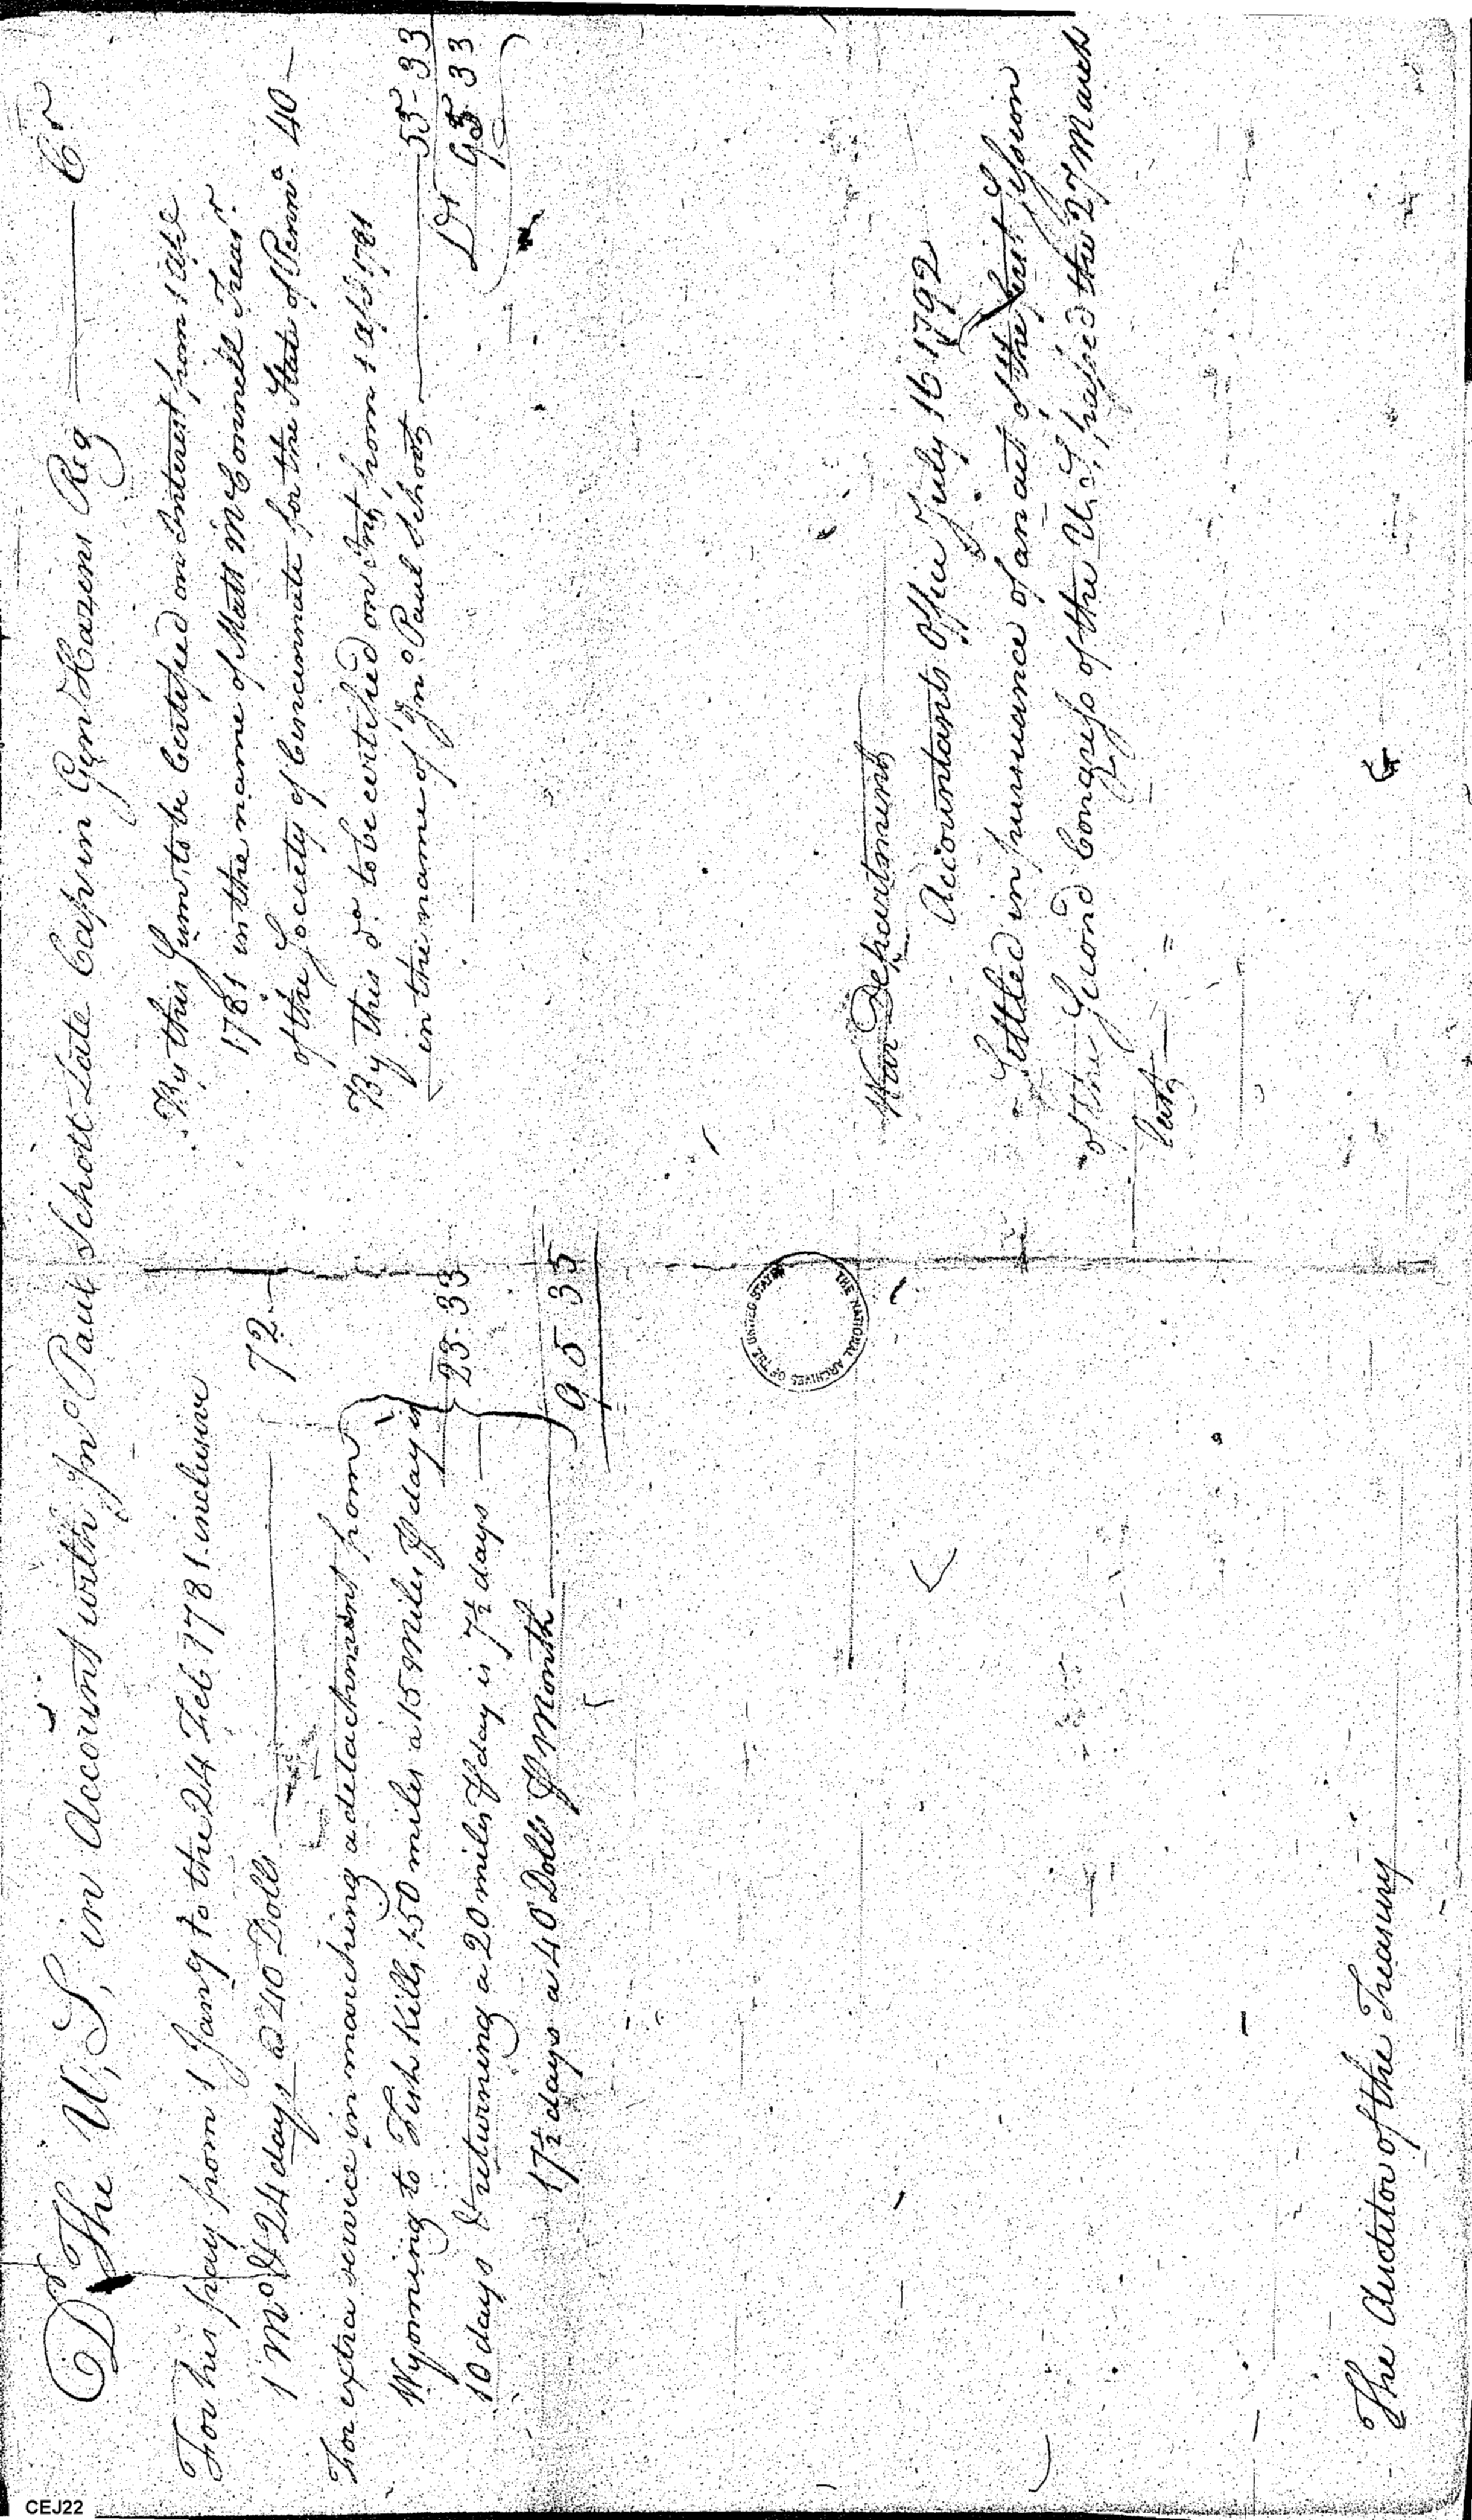 Dr The U, S, in Account with Jno Paul Schott Late Capt in Gen Hazens Reg — Cr
For his pay from 1 Jany to the 24 Feb 1781 inclusive
1 Mo & 24 days a 40 Dolls — 72 —
For extra service in marching a detachment from
Wyoming to Fish Kill, 150 miles a 15 Miles ⅌ day is
10 days & returning a 20 miles ⅌ day is 7½ days — 23.33
17½ days a 40 Dolls ⅌ Month
95 35
By this Sum, to be Certified on Interest from 1 Apl
1781 in the name of Matt McConnell Treasr
of the Society of Cincinnate for the State of Pennа 40 —
By this do to be certified on Int, from 1 Apl 1781
in the name of Jno Paul Schott — 55-33
Drs 95 33
War Department
Accountants Office July 16 1792
Settled in pursuance of an act of the first Session
of the Second Congress of the U, S, passed the 27 March
last,
THE NATIONAL ARCHIVES OF THE UNITED STATES
The Auditor of the Treasury
CEJ22